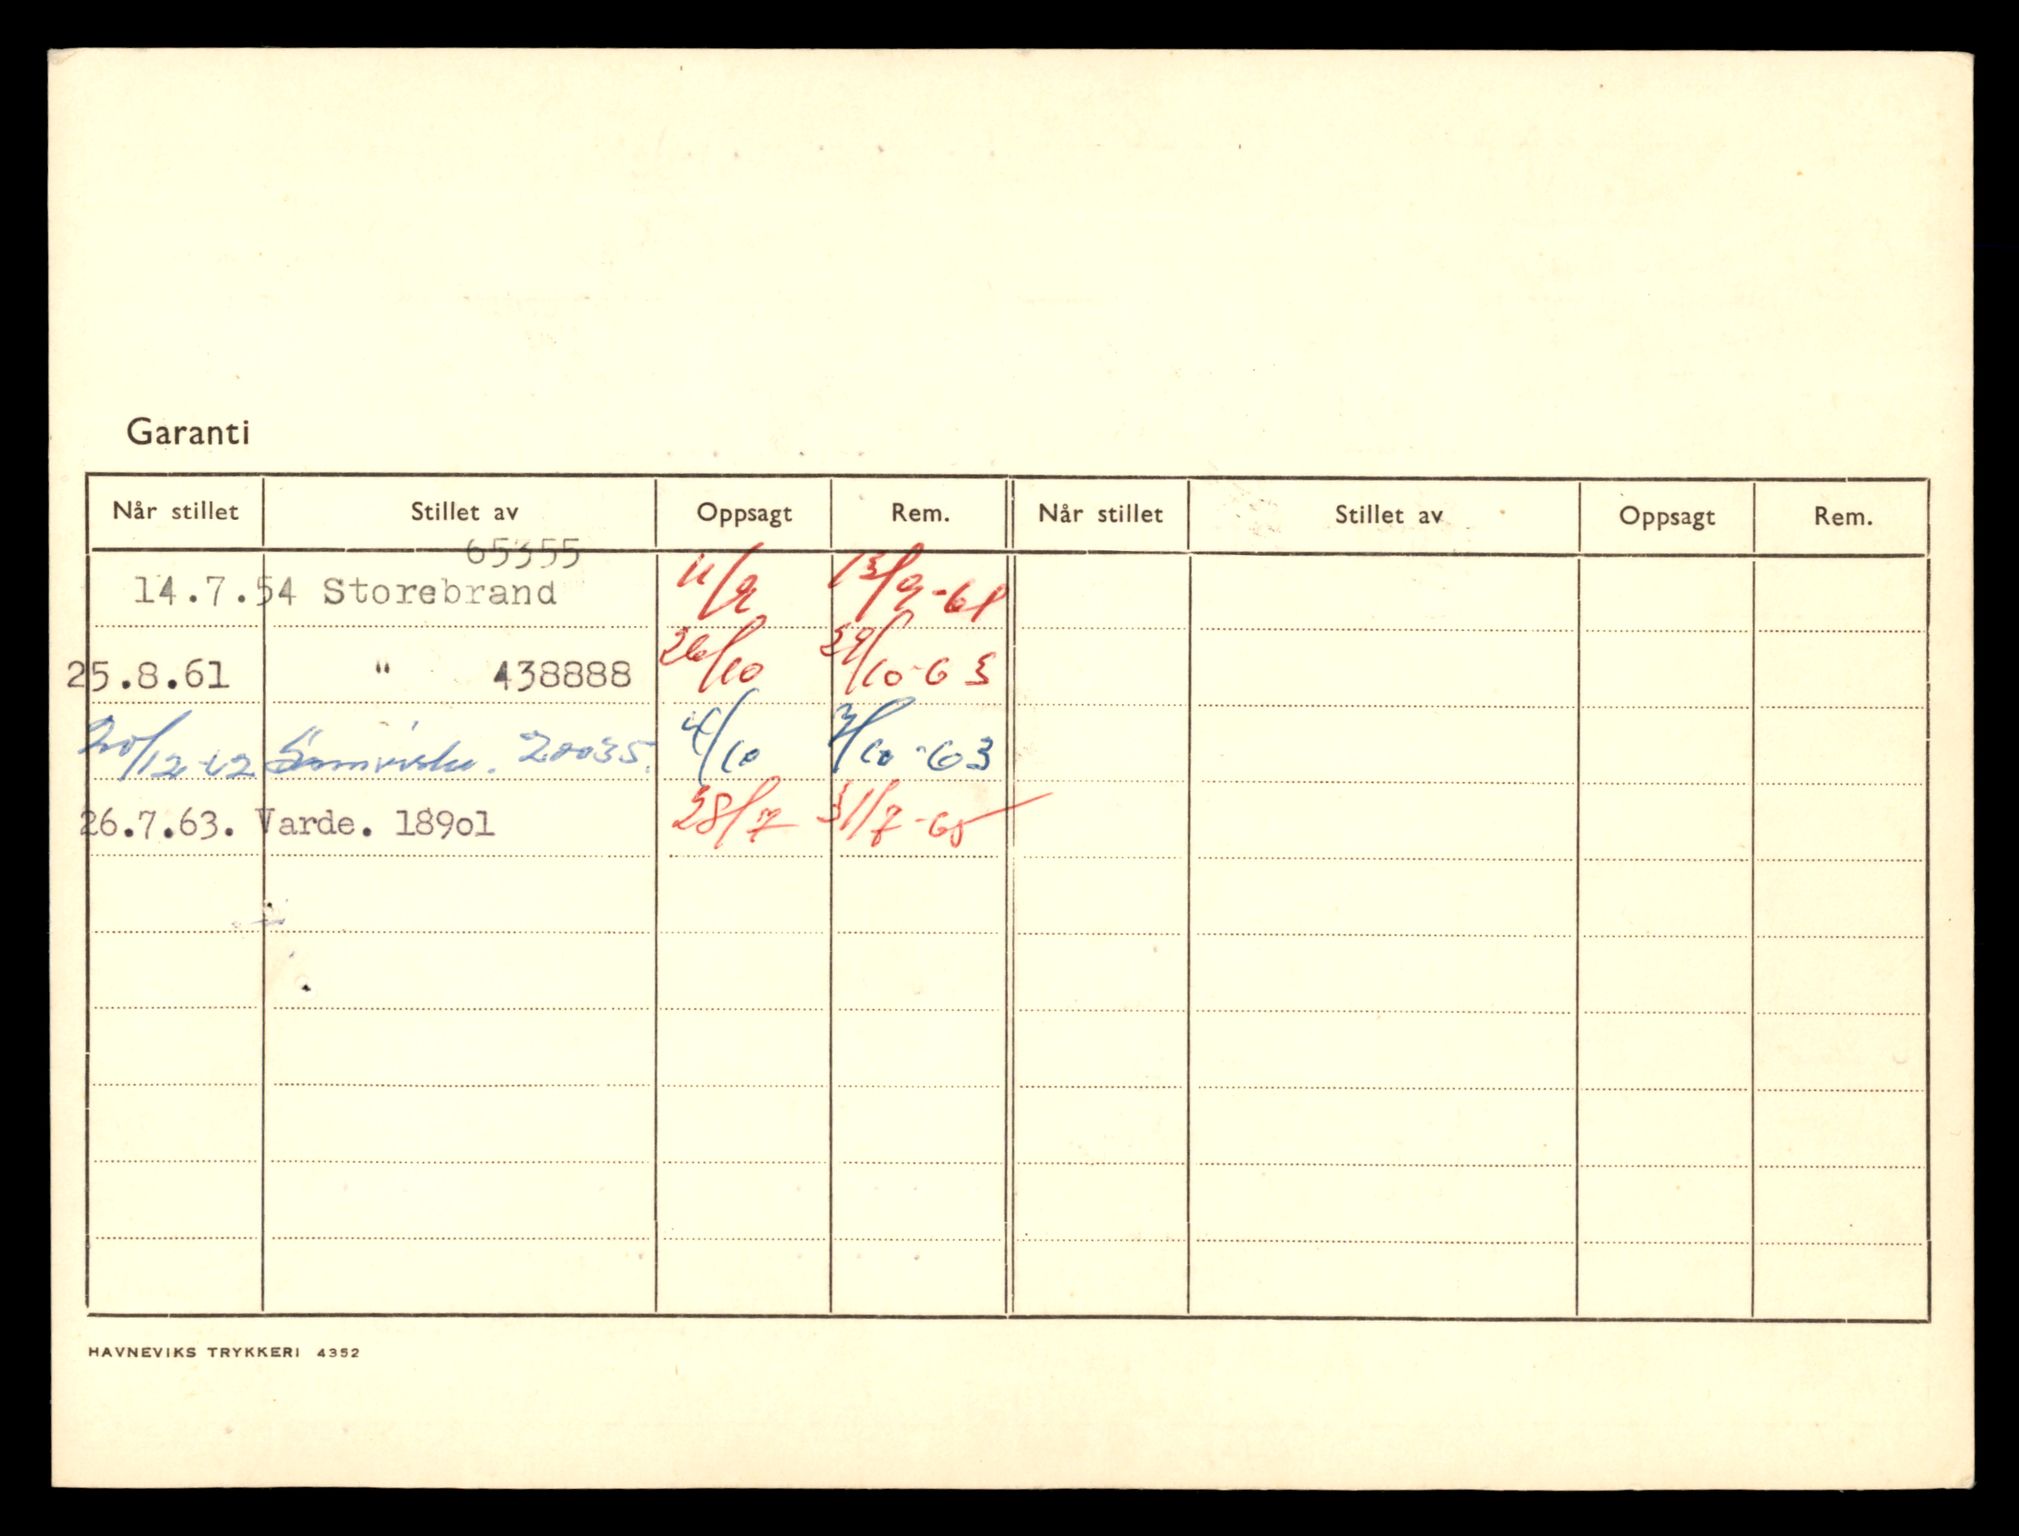 Garanti
Når stillet Stillet av Oppsagt Rem. Når stillet Stillet av Oppsagt Rem.
65355
14.7.54 Storebrand 11/9 13/9-61
25.8.61 " 438888 26/10 29/10-63
20/12-62 20035. 4/10 7/10-63
26.7.63. Varde. 189o1 28/7 31/7-65
HAVNEVIKS TRYKKERI 4352